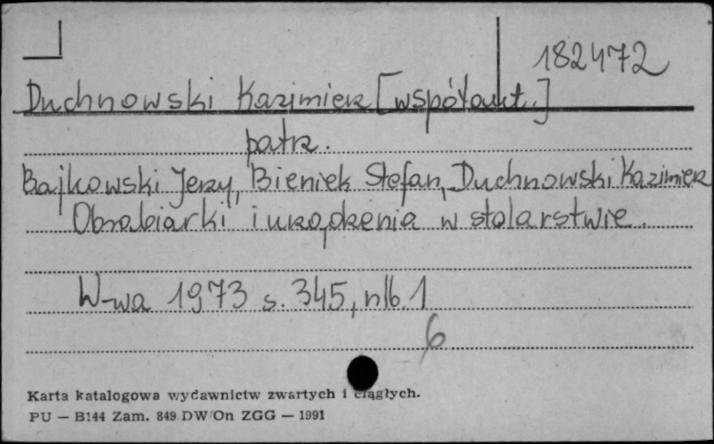 182472
Duchnowski Kazimierz [współaut.]
patrz.
Bajkowski Jerzy, Bieniek Stefan, Duchnowski Kazimierz
Obrabiarki i urządzenia w stolarstwie.
W-wa 1973 s. 345, nlb. 1
6
Karta katalogowa wydawnictw zwartych i ciągłych.
PU — B144 Zam. 849 DW/On ZGG — 1991